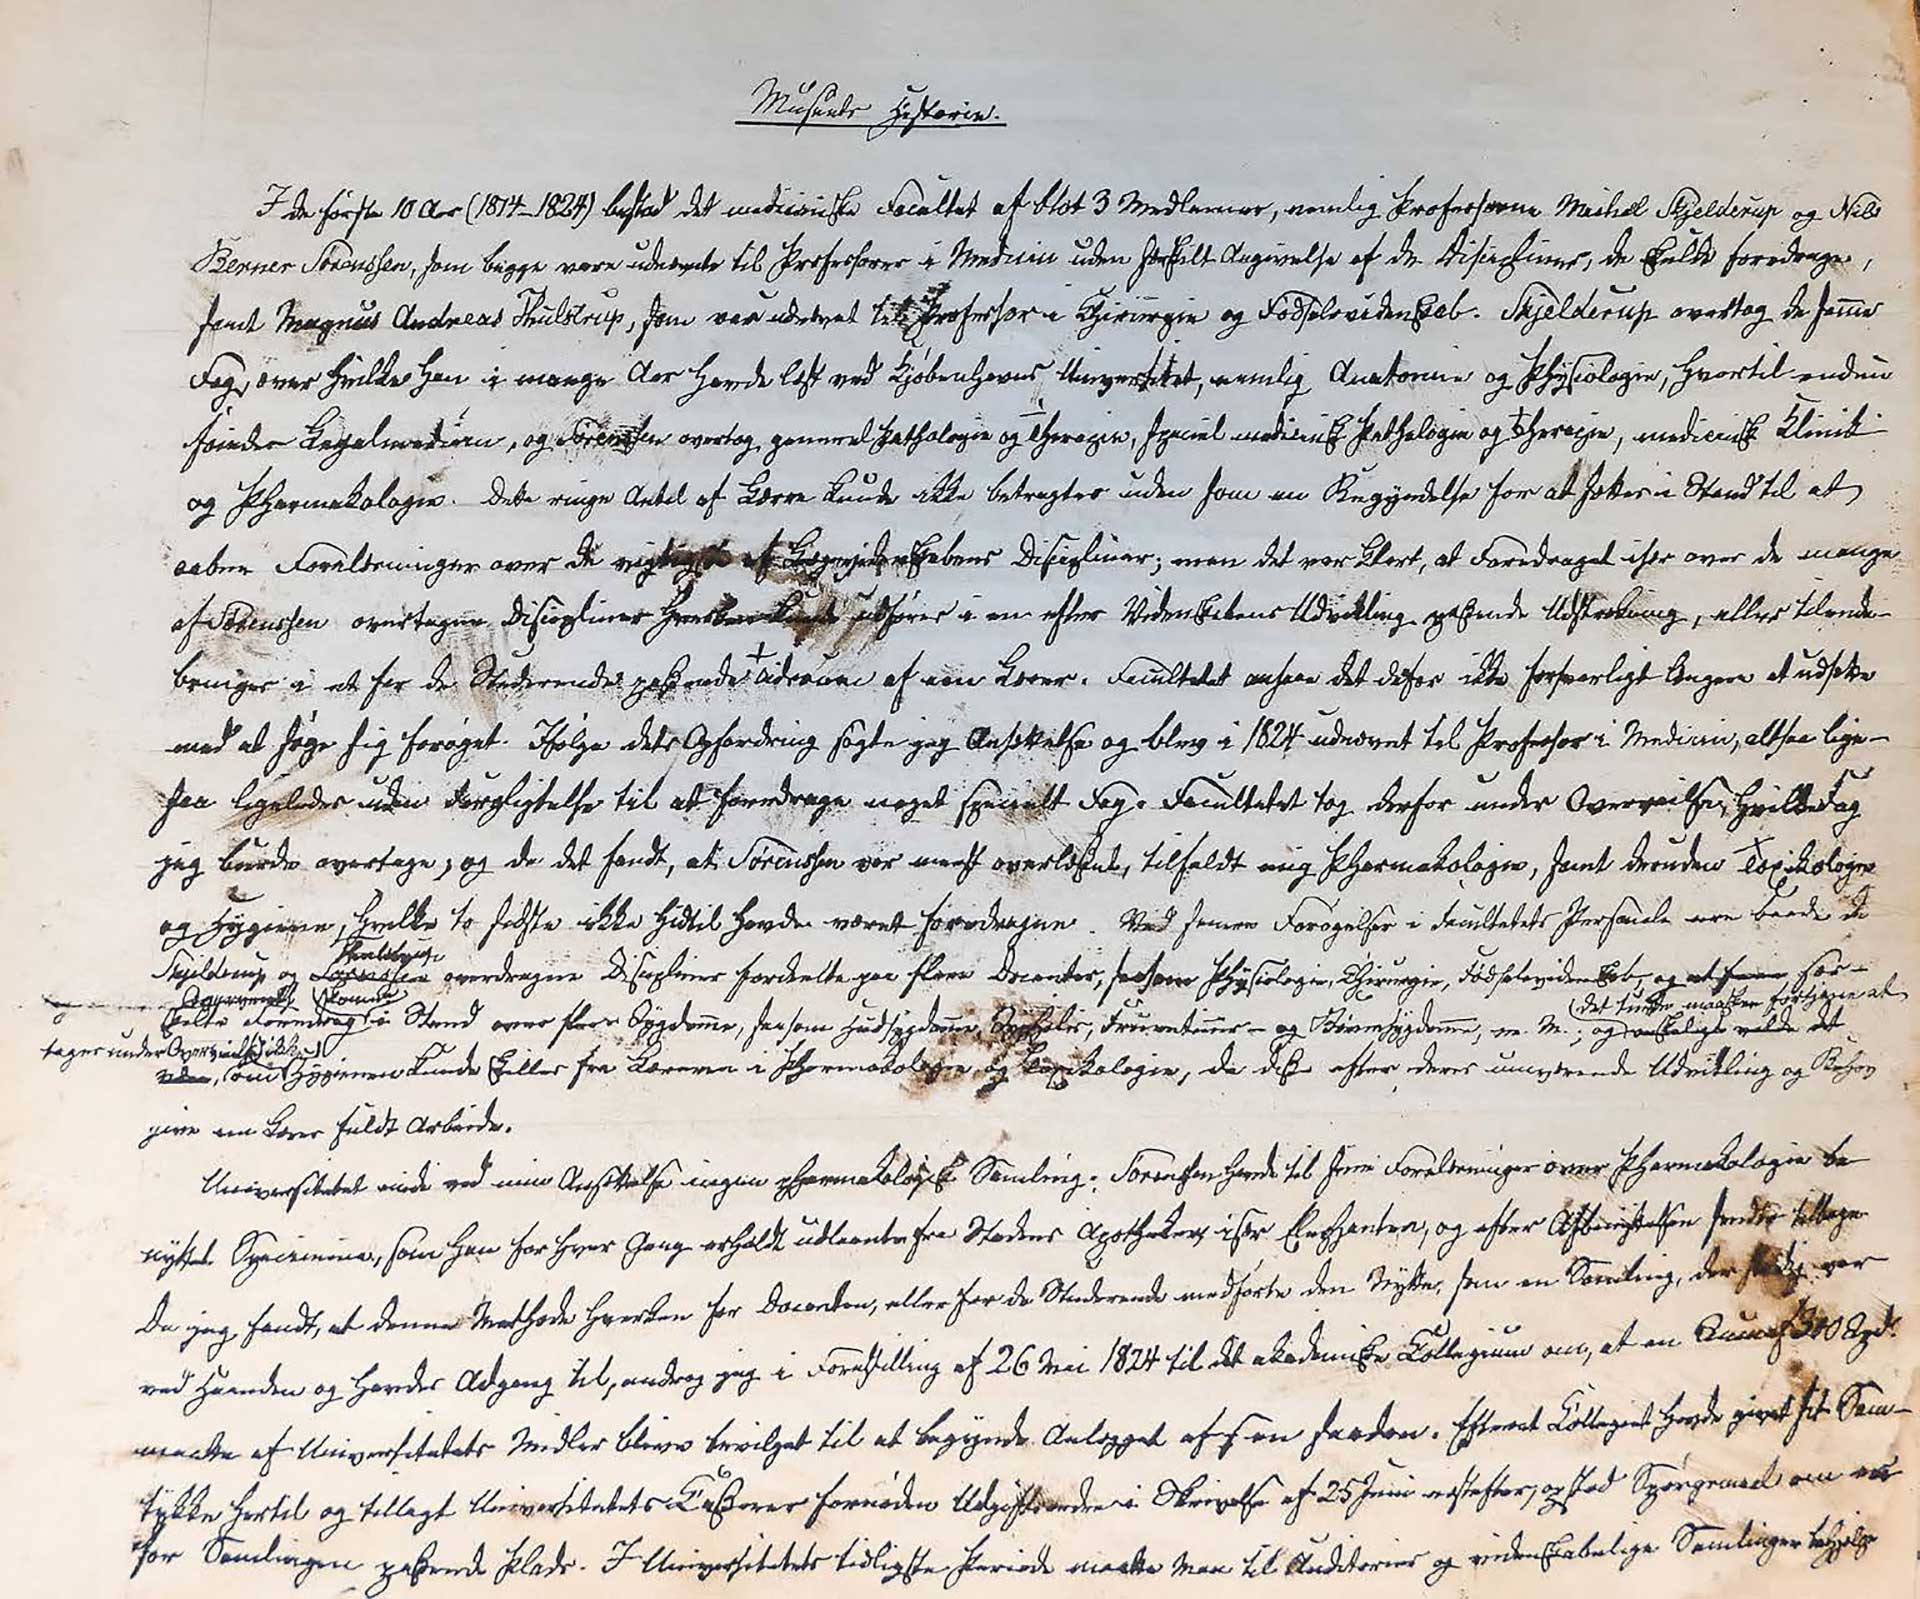 Museets Historie.
I de første 10 Aar (1814–1824) bestod det medicinske Facultet af blot 3 Medlemmer, nemlig Professorerne Michael Skjelderup og Nils
Berner Sørenssen, som begge vare udnævnte til Professorer i Medicin uden særskilt Angivelse af de Discipliner, de skulde foredrage,
samt Magnus Andreas Thulstrup, som var udnævnt til Professor i Chirurgie og Fødselsvidenskab. Skjelderup overtog de samme
Fag, over hvilke han i mange Aar havde læst ved Kjøbenhavns Universitet, nemlig Anatomie og Physiologie, hvortil endnu
føiedes Legalmedicin, og Sørenssen overtog general Pathologie og Therapie, speciel medicinsk Pathologie og Therapie, medicinsk Klinik
og Pharmakologie. Dette ringe Antal af Lærere kunde ikke betragtes uden som en Begyndelse for at sættes i Stand til at
aabne Forelæsninger over de vigtigste af Lægevidenskabens Discipliner; men det var klart, at Foredraget især over de mange
af Sørenssen overtagne Discipliner hverken kunde udføres i en efter Videnskabens Udvikling passende Udstrækning, eller tilende-
bringes i et for de Studerende passende Tidsrum af een Lærer. Facultetet ansaae det derfor ikke forsvarligt længere at udsætte
med at søge sig forøget. Ifølge dets Opfordring søgte jeg Ansættelse og blev i 1824 udnævnt til Professor i Medicin, altsaa lige-
saa ligeledes uden Forpligtelse til at foredrage noget specielt Fag. Facultetet tog derfor under Overveielse, hvilke Fag
jeg burde overtage, og da det fandt, at Sørenssen var meest overlæsset, tilfaldt mig Pharmakologie, samt desuden Toxikologie
og Hygiene, hvilke to sidste ikke hidtil havde været foredragne. Ved senere Forøgelser i Facultetets Personale ere baade de
Thulstrup
Skjelderup og Sørenssen overdragne Discipliner fordeelte paa flere Docenter, saasom Physiologie, Chirurgie, Fødselsvidenskab, og at sær-
komne (det turde maaskee fortjene at
skilte Foredrag i Stand over flere Sygdomme, saasom Hudsygdomme, Syphilis, Fruentimmer- og Børnesygdomme, m. M.; og ønskeligt vilde det
tages under Overveielse
være, om Hygienen kunde skilles fra Læreren i Pharmakologie og Toxikologie, da disse efter deres nuværende Udvikling og Behov
give een Lærer fuldt Arbeide.
Universitetet eiede ved min Ansættelse ingen pharmakologisk Samling. Sørenssen havde til sine Forelæsninger over Pharmakologie be-
nyttet Specimina, som han for hver Gang erholdt udlaante fra Stadens Apotheker, især Elephanten, og efter Afbenyttelsen sendte tilbage.
Da jeg fandt, at denne Methode hverken for Docenten, eller for de Studerende medførte den Nytte, som en Samling, der stedse var
ved Haanden og havdes Adgang til, androg jeg i Forestilling af 26 Mai 1824 til det akademiske Collegium om, at en Sum af 300 Spd.
maatte af Universitetets Midler blive bevilget til at begynde Anlægget af en saadan. Efterat Collegiet havde givet sit Sam-
tykke hertil og tillagt Universitetets Casserer fornøden Udgiftsordre i Skrivelse af 25 Juni næstefter, opstod Spørgsmaal om en
for Samlingen passende Plads. I Universitetets tidligste Periode maatte man til Auditorier og videnskabelige Samlinger behjelpe